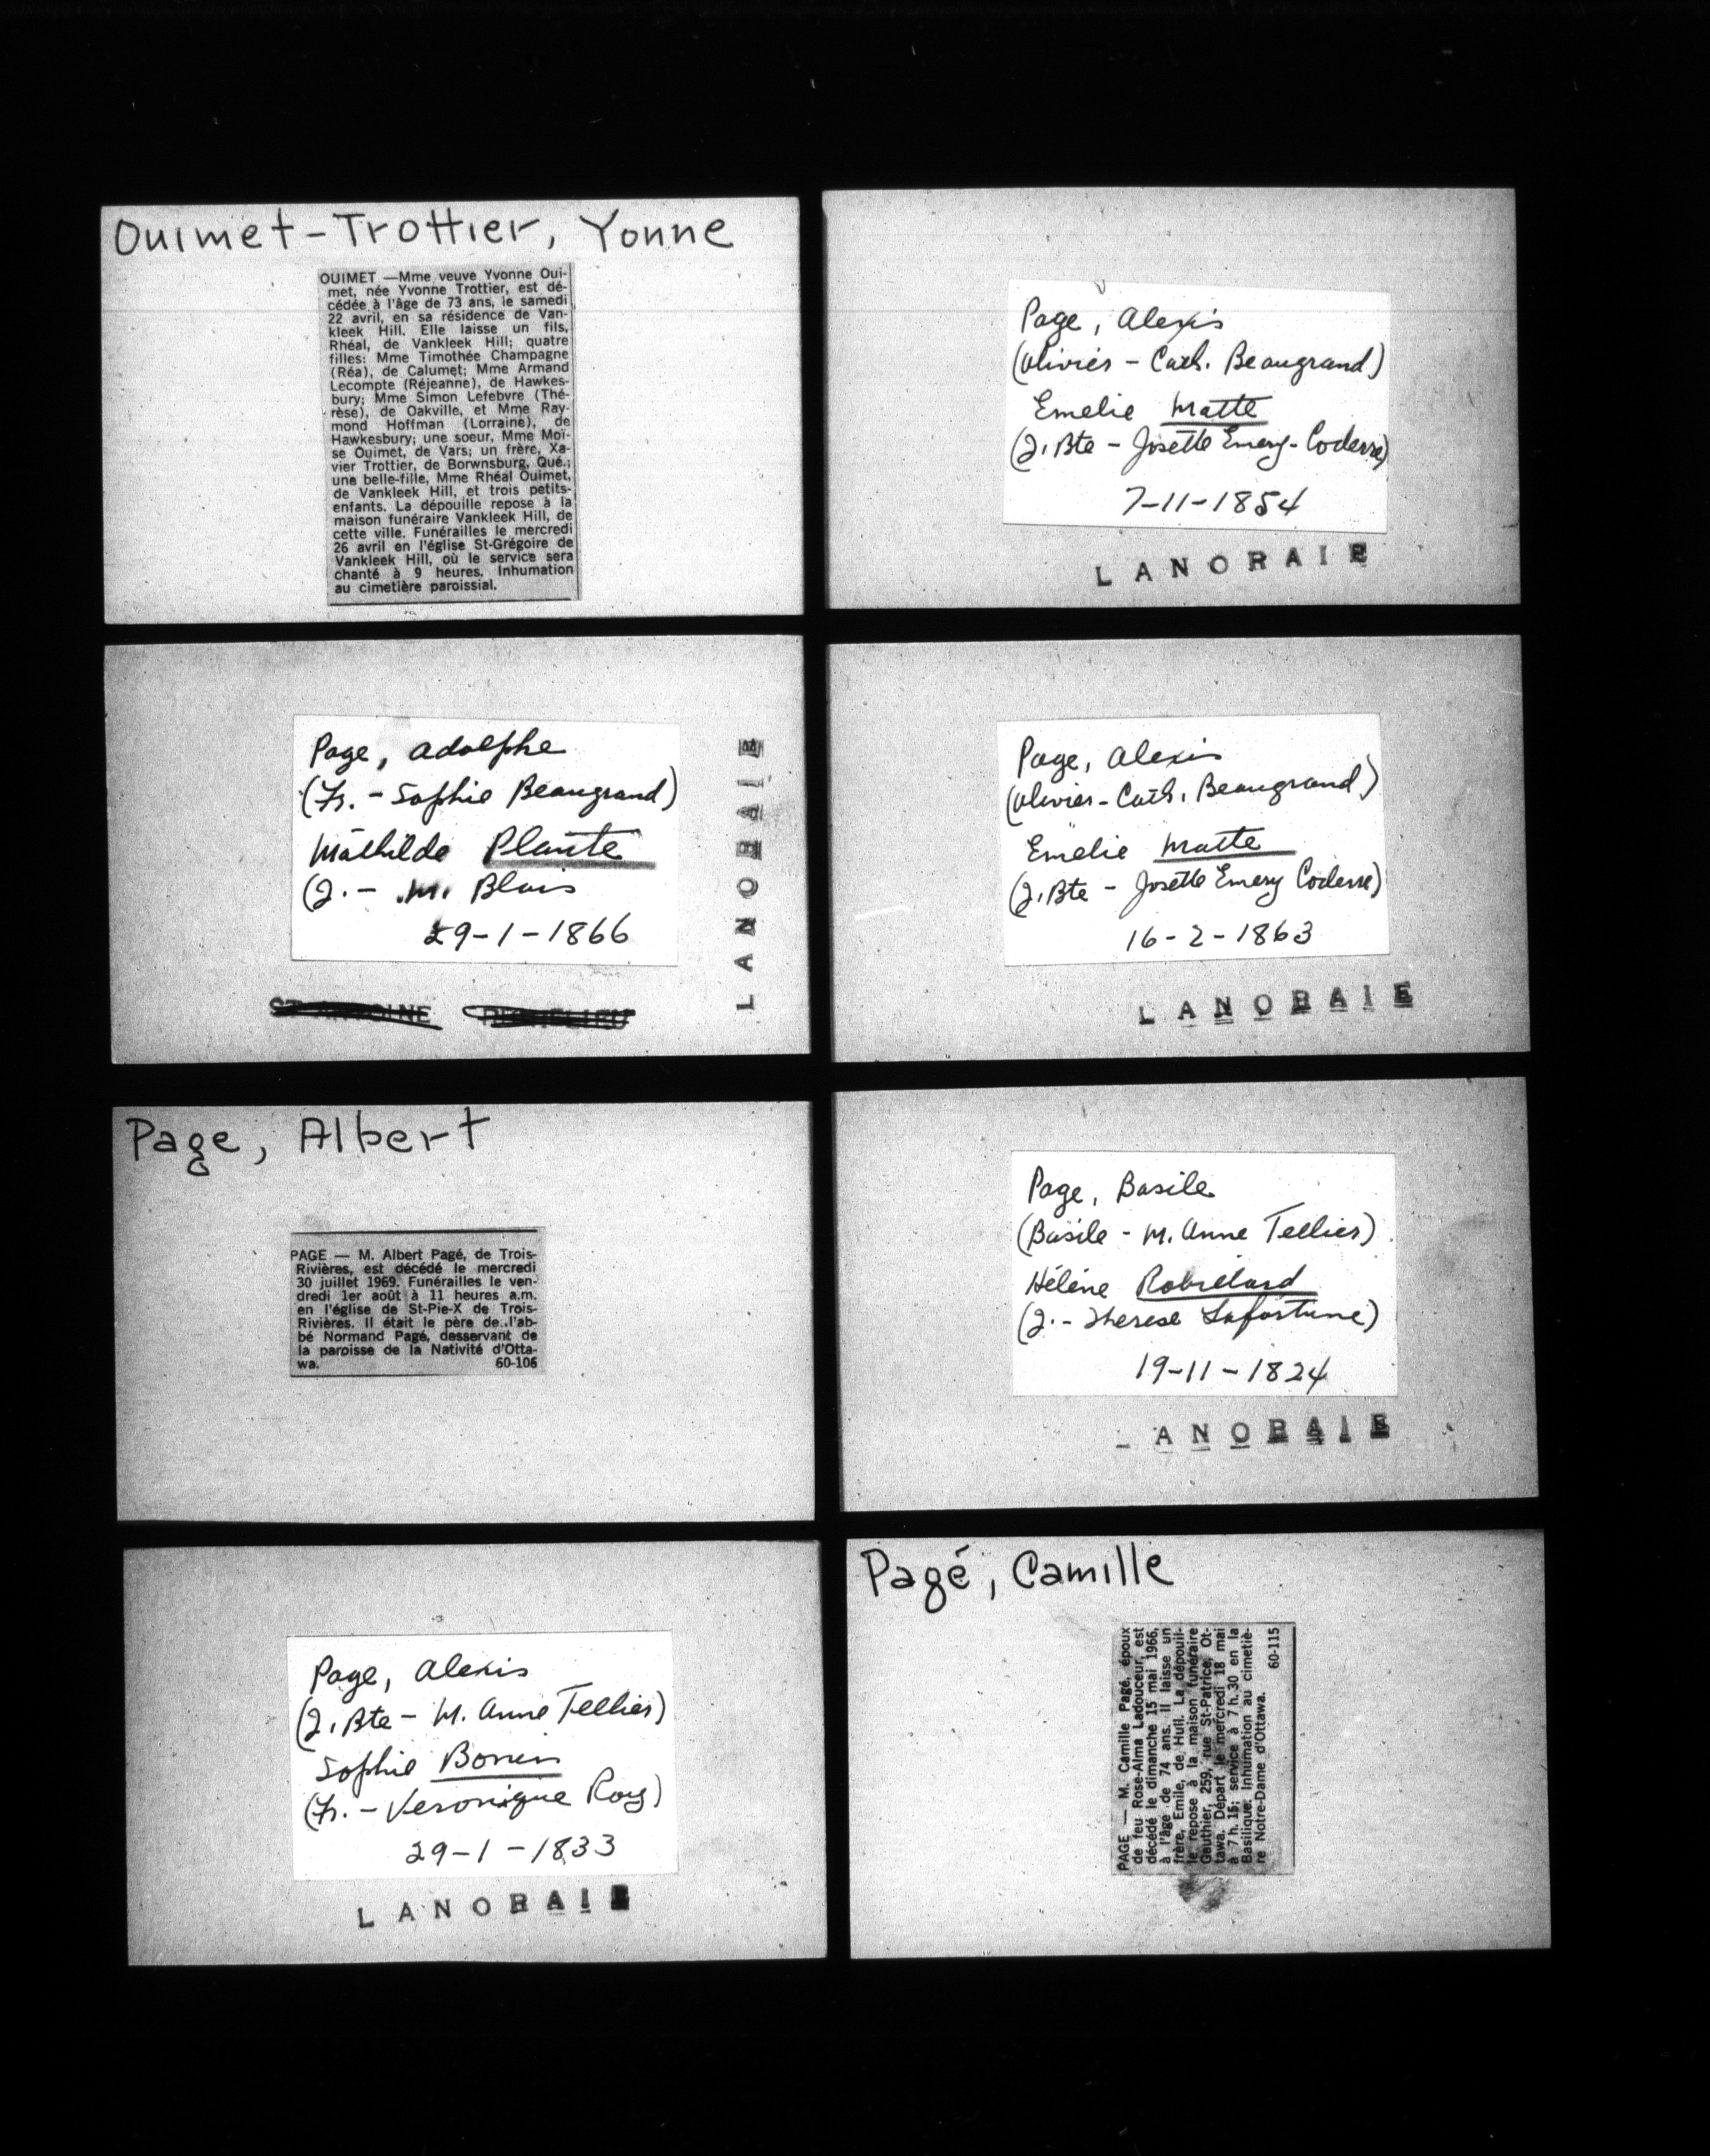 Ouimet-Trottier, Yonne
OUIMET —Mme veuve Yvonne Oui-
met, née Yvonne Trottier, est dé-
cédée à l'âge de 73 ans, le samedi
22 avril, en sa résidence de Van-
kleek Hill. Elle laisse un fils,
Rhéal, de Vankleek Hill; quatre
filles: Mme Timothée Champagne
(Réa), de Calumet; Mme Armand
Lecompte (Réjeanne), de Hawkes-
bury; Mme Simon Lefebvre (Thé-
rèse), de Oakville, et Mme Ray-
mond Hoffman (Lorraine), de
Hawkesbury; une soeur, Mme Moï-
se Ouimet, de Vars; un frère, Xa-
vier Trottier, de Borwnsburg, Qué.;
une belle-fille, Mme Rhéal Ouimet,
de Vankleek Hill, et trois petits-
enfants. La dépouille repose à la
maison funéraire Vankleek Hill, de
cette ville. Funérailles le mercredi
26 avril en l'église St-Grégoire de
Vankleek Hill, où le service sera
chanté à 9 heures. Inhumation
au cimetière paroissial.
Page, Alexis
(Olivier - Cath. Beaugrand)
Emelie Matte
(J. Bte - Josette Emery-Coderre)
7-11-1854
LANORAIE
Page, Adolphe
(Fr. - Sophie Beaugrand)
Mathilde Plante
(J. - M. Blais
29-1-1866
LANORAIE
ST ANTOINE RICHELIEU
Page, Alexis
(Olivier - Cath. Beaugrand)
Emelie Matte
(J. Bte - Josette Emery Coderre)
16-2-1863
LANORAIE
Page, Albert
PAGE — M. Albert Pagé, de Trois-
Rivières, est décédé le mercredi
30 juillet 1969. Funérailles le ven-
dredi 1er août à 11 heures a.m.
en l'église de St-Pie-X de Trois-
Rivières. Il était le père de l'ab-
bé Normand Pagé, desservant de
la paroisse de la Nativité d'Otta-
wa. 60-106
Page, Basile
(Basile - M. Anne Tellier)
Hélène Robillard
(J. - Therese Lafortune)
19-11-1824
LANORAIE
Page, Alexis
(J. Bte - M. Anne Tellier)
Sophie Bonin
(Fr. - Veronique Roy)
29-1-1833
LANORAIE
Pagé, Camille
PAGE — M. Camille Pagé, époux
de feu Rose-Alma Ladouceur, est
décédé le dimanche 15 mai 1966,
à l'âge de 74 ans. Il laisse un
frère, Emile, de Hull. La dépouil-
le repose à la maison funéraire
Gauthier, 259, rue St-Patrice, Ot-
tawa. Départ le mercredi 18 mai
à 7 h. 15; service à 7 h. 30 en la
Basilique. Inhumation au cimetiè-
re Notre-Dame d'Ottawa.
60-115